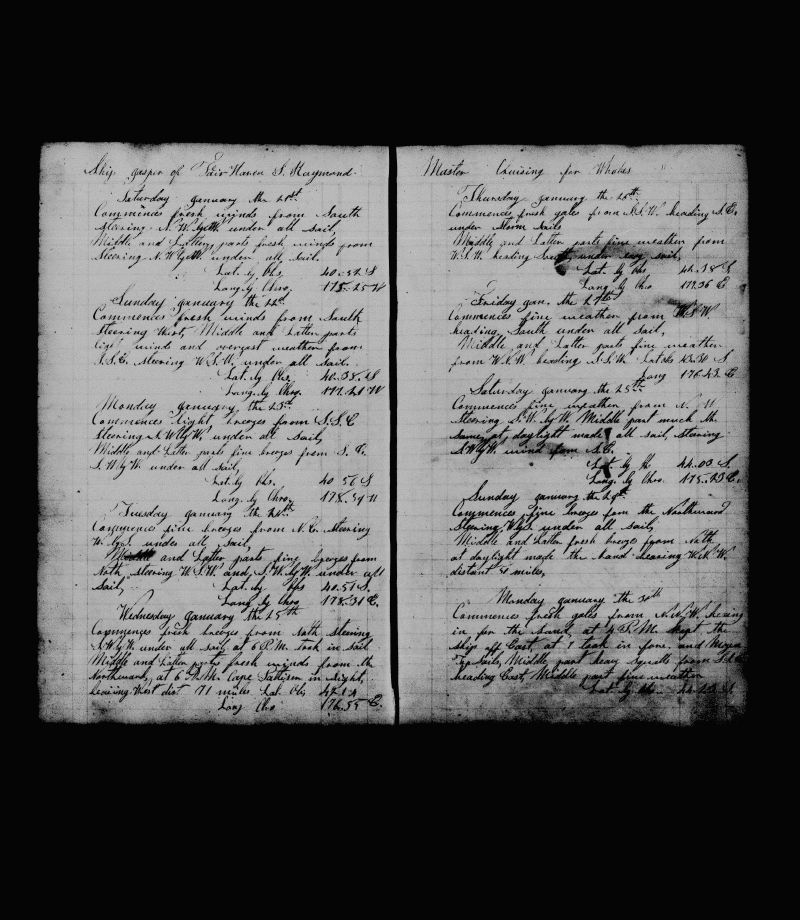 Ship gasper of Fair Haven S. Raymond
Saturday january the 21st
Commences fresh winds from South
Steering N. W. by W. under all sail,
Middle and Lattery parts fresh winds from
Steering N. W by W. under all sail.
Lat. by Obs. 40..52 S
Long. by Chro. 175..25 W
Sunday january the 22d.
Commences fresh winds from South
Steering West Middle and Latter parts
light winds and overcast weather from
S.S.E. Steering W.S.W. under all sail.
Lat. by Obs. 40..38. S
Long. by Chro. 177..21 W
Monday january the 23d.
Commences light breezes from S.S.E
Steering S.W by W. under all sail,
Middle and Latter parts fine breezes from S. E.
S. W by W. under all sail,
Lat. by Obs. 40 56 S
Long. by Chro. 178..59 W
Tuesday january the 24th
Commences fine breezes from N.E. Steering
W. by S. under all sail,
Middle and Latter parts fine breezes from
Noth Steering W.S.W. and S.W. by W. under all
Sail, Lat. by Obs 40.51 S.
Long. by Chro. 178..31 E.
Wednesday january the 25th
Commences fresh breezes from Noth Steering
S.W by W. under all sail, at 6 P.M. took in sail
Middle and Latter parts fresh winds from the
Northward, at 6 A.M. Cape Pallison in sight,
bearing West dist 71 miles Lat. Obs 42.12
Long Chro 176..55 E.
Master Cruising for Whales
Thursday january the 26th
Commences fresh gales from S.S.W. heading S.E.
under Storm Sails
Middle and Latter parts fine weather from
W.S.W. heading South, under easy sail,
Lat. by Obs 42..38 S
Long by Chro 177.36 E
Friday jan. the 27th
Commences fine weather from W S W
heading South under all sail,
Middle and Latter parts fine weather
from W.N.W. heading S.S.W. Lat obs 43.30 S
Long 176.43. E
Saturday january the 28th
Commences fine weather from N. W
Steering S.W. by W. Middle part much the
Same, at daylight made all sail, Steering
S.W by W. wind from S.E.
Lat. by Obs 44..00 S.
Long. by Chro. 175..23 E.
Sunday january the 29th
Commences fine breezes from the Northward
Steering W by S under all sail,
Middle and Latter fresh breeze from Noth
at daylight made the land bearing W.
distant 50 miles,
Monday january the 30th
Commences fresh gales from N.N.W. heading
in for the land, at 4 P.M. kept the
ship off East, at 1 took in fore, and Mizen
Top Sails, Middle part heavy Squalls from
heading East, Middle part fine weather
Lat. by Obs.